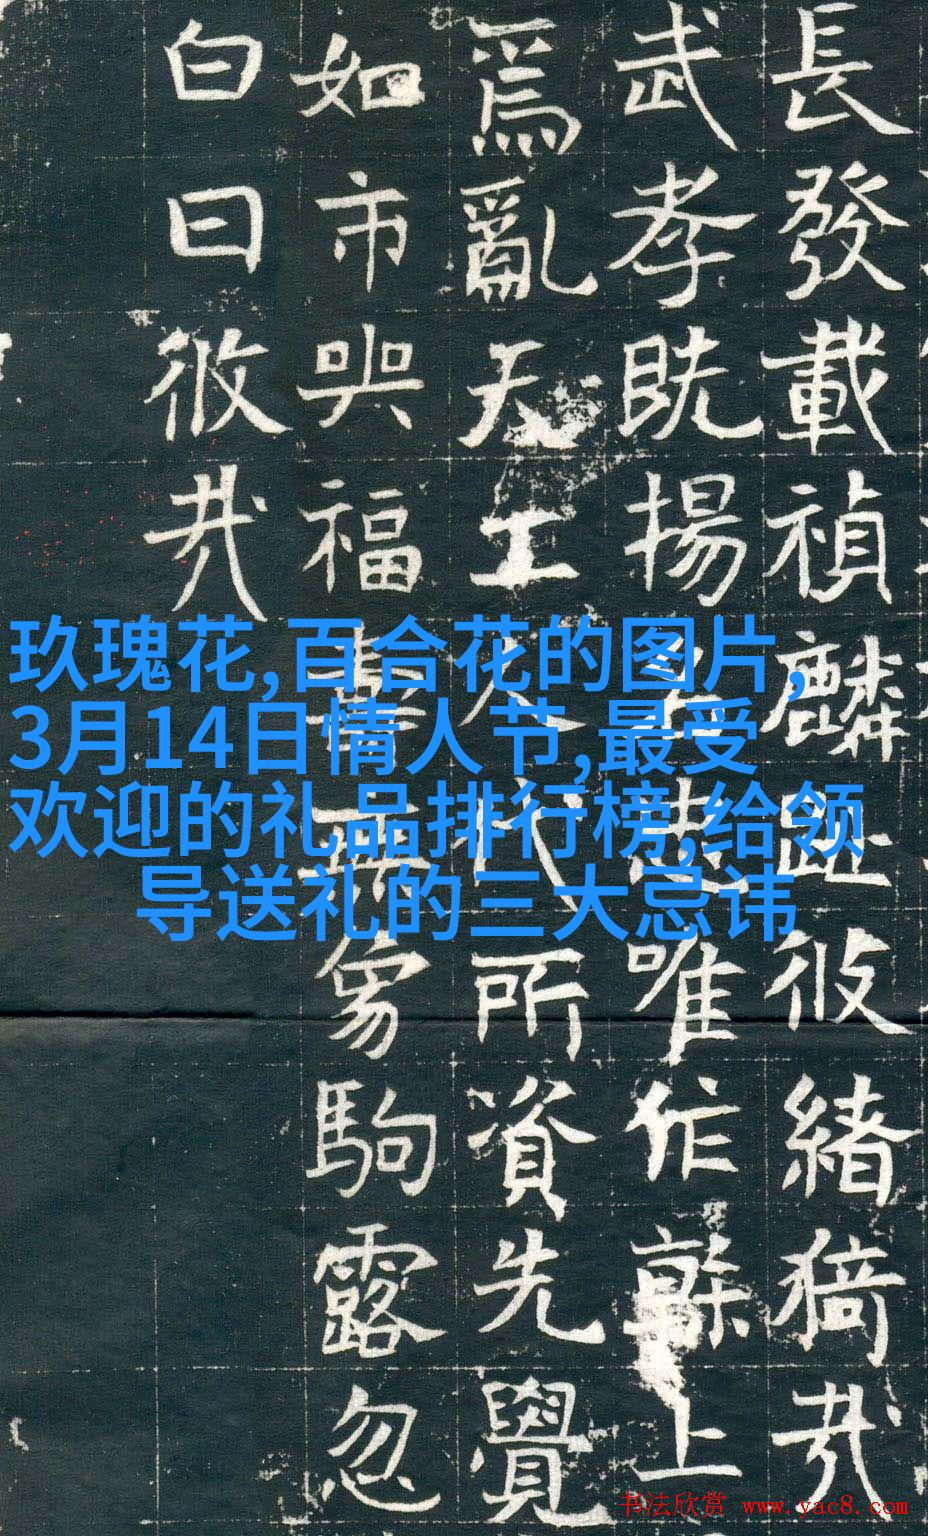 長發載禎麟趾彼緒猗哉
武孝既揚忠唯作幹上
爲亂天工人代所資先覺
如市與福無駒露忽
白日攸哉
玖瑰花,百合花的图片,
3月14日情人节,最受
欢迎的礼品排行榜,给领
导送礼的三大忌讳
书法欣赏 www.yac8.com